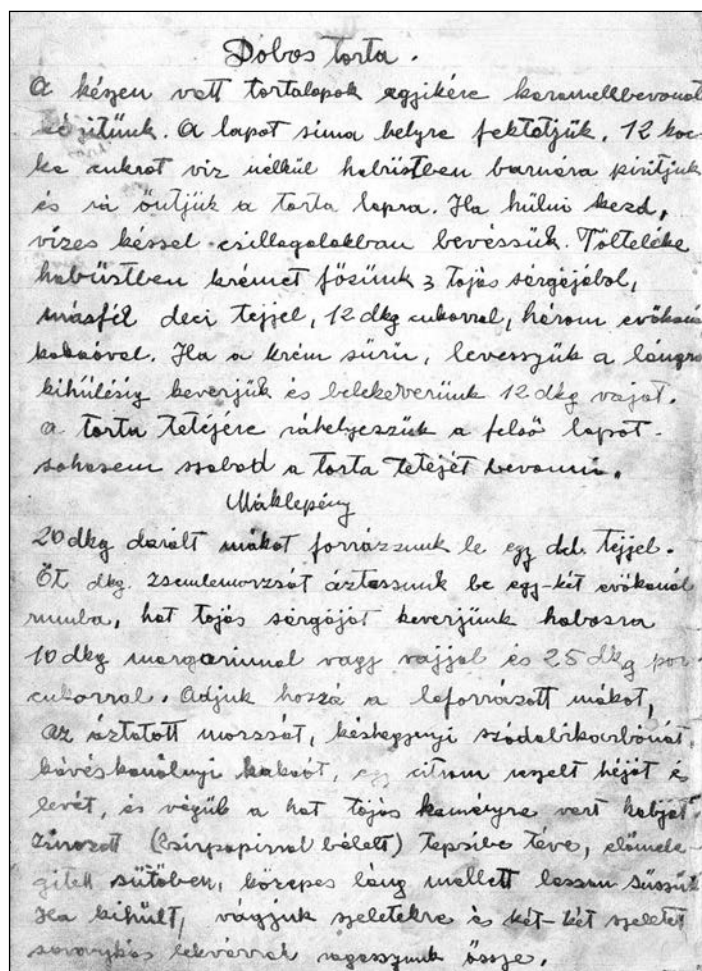 Dobos torta.
A készen vett tortalapok egyikére karamellbevonat
készitünk. A lapot sima helyre fektetjük, 12 koc-
ka cukrot viz nélkül habüstben barnára piritjuk
és rá öntjük a torta lapra. Ha hülni kezd,
vizes késsel csillagalakban bevéssük. Tölteléke
habüstben krémet főzünk 3 tojás sárgájából,
másfél deci tejjel, 12 dkg cukorral, három evőkaná
kakaóval. Ha a krém sürü, levesszük a lángró
kihülésig keverjük és belekeverünk 12 dkg vajat.
a torta tetéjére ráhelyezzük a felső lapot.
sohasem szabad a torta tetéjét bevonni.
Máklepény
20 dkg darált mákot forrázzunk le egy del. tejjel.
Öt dkg. zsemlemorzsát áztassunk be egy-két evőkanál
rumba, hat tojás sárgáját keverjünk habosra
10 dkg margarinnal vagy vajjal és 25 dkg por
cukorral. Adjuk hozzá a leforrázott mákot,
az áztatott morzsát, késhegynyi szódabikarbónát,
kávéskanálnyi kakaót, egy citrom reszelt héját és
levét, és végül a hat tojás keményre vert habját.
Zsirozott (zsirpapirral bélelt) tepsibe téve, előmele-
gitett sütőben, közepes láng mellett lassan süssük
Ha kihült, vágjuk szeletekre és két-két szeletet
savanykás lekvárral ragasszunk össze.